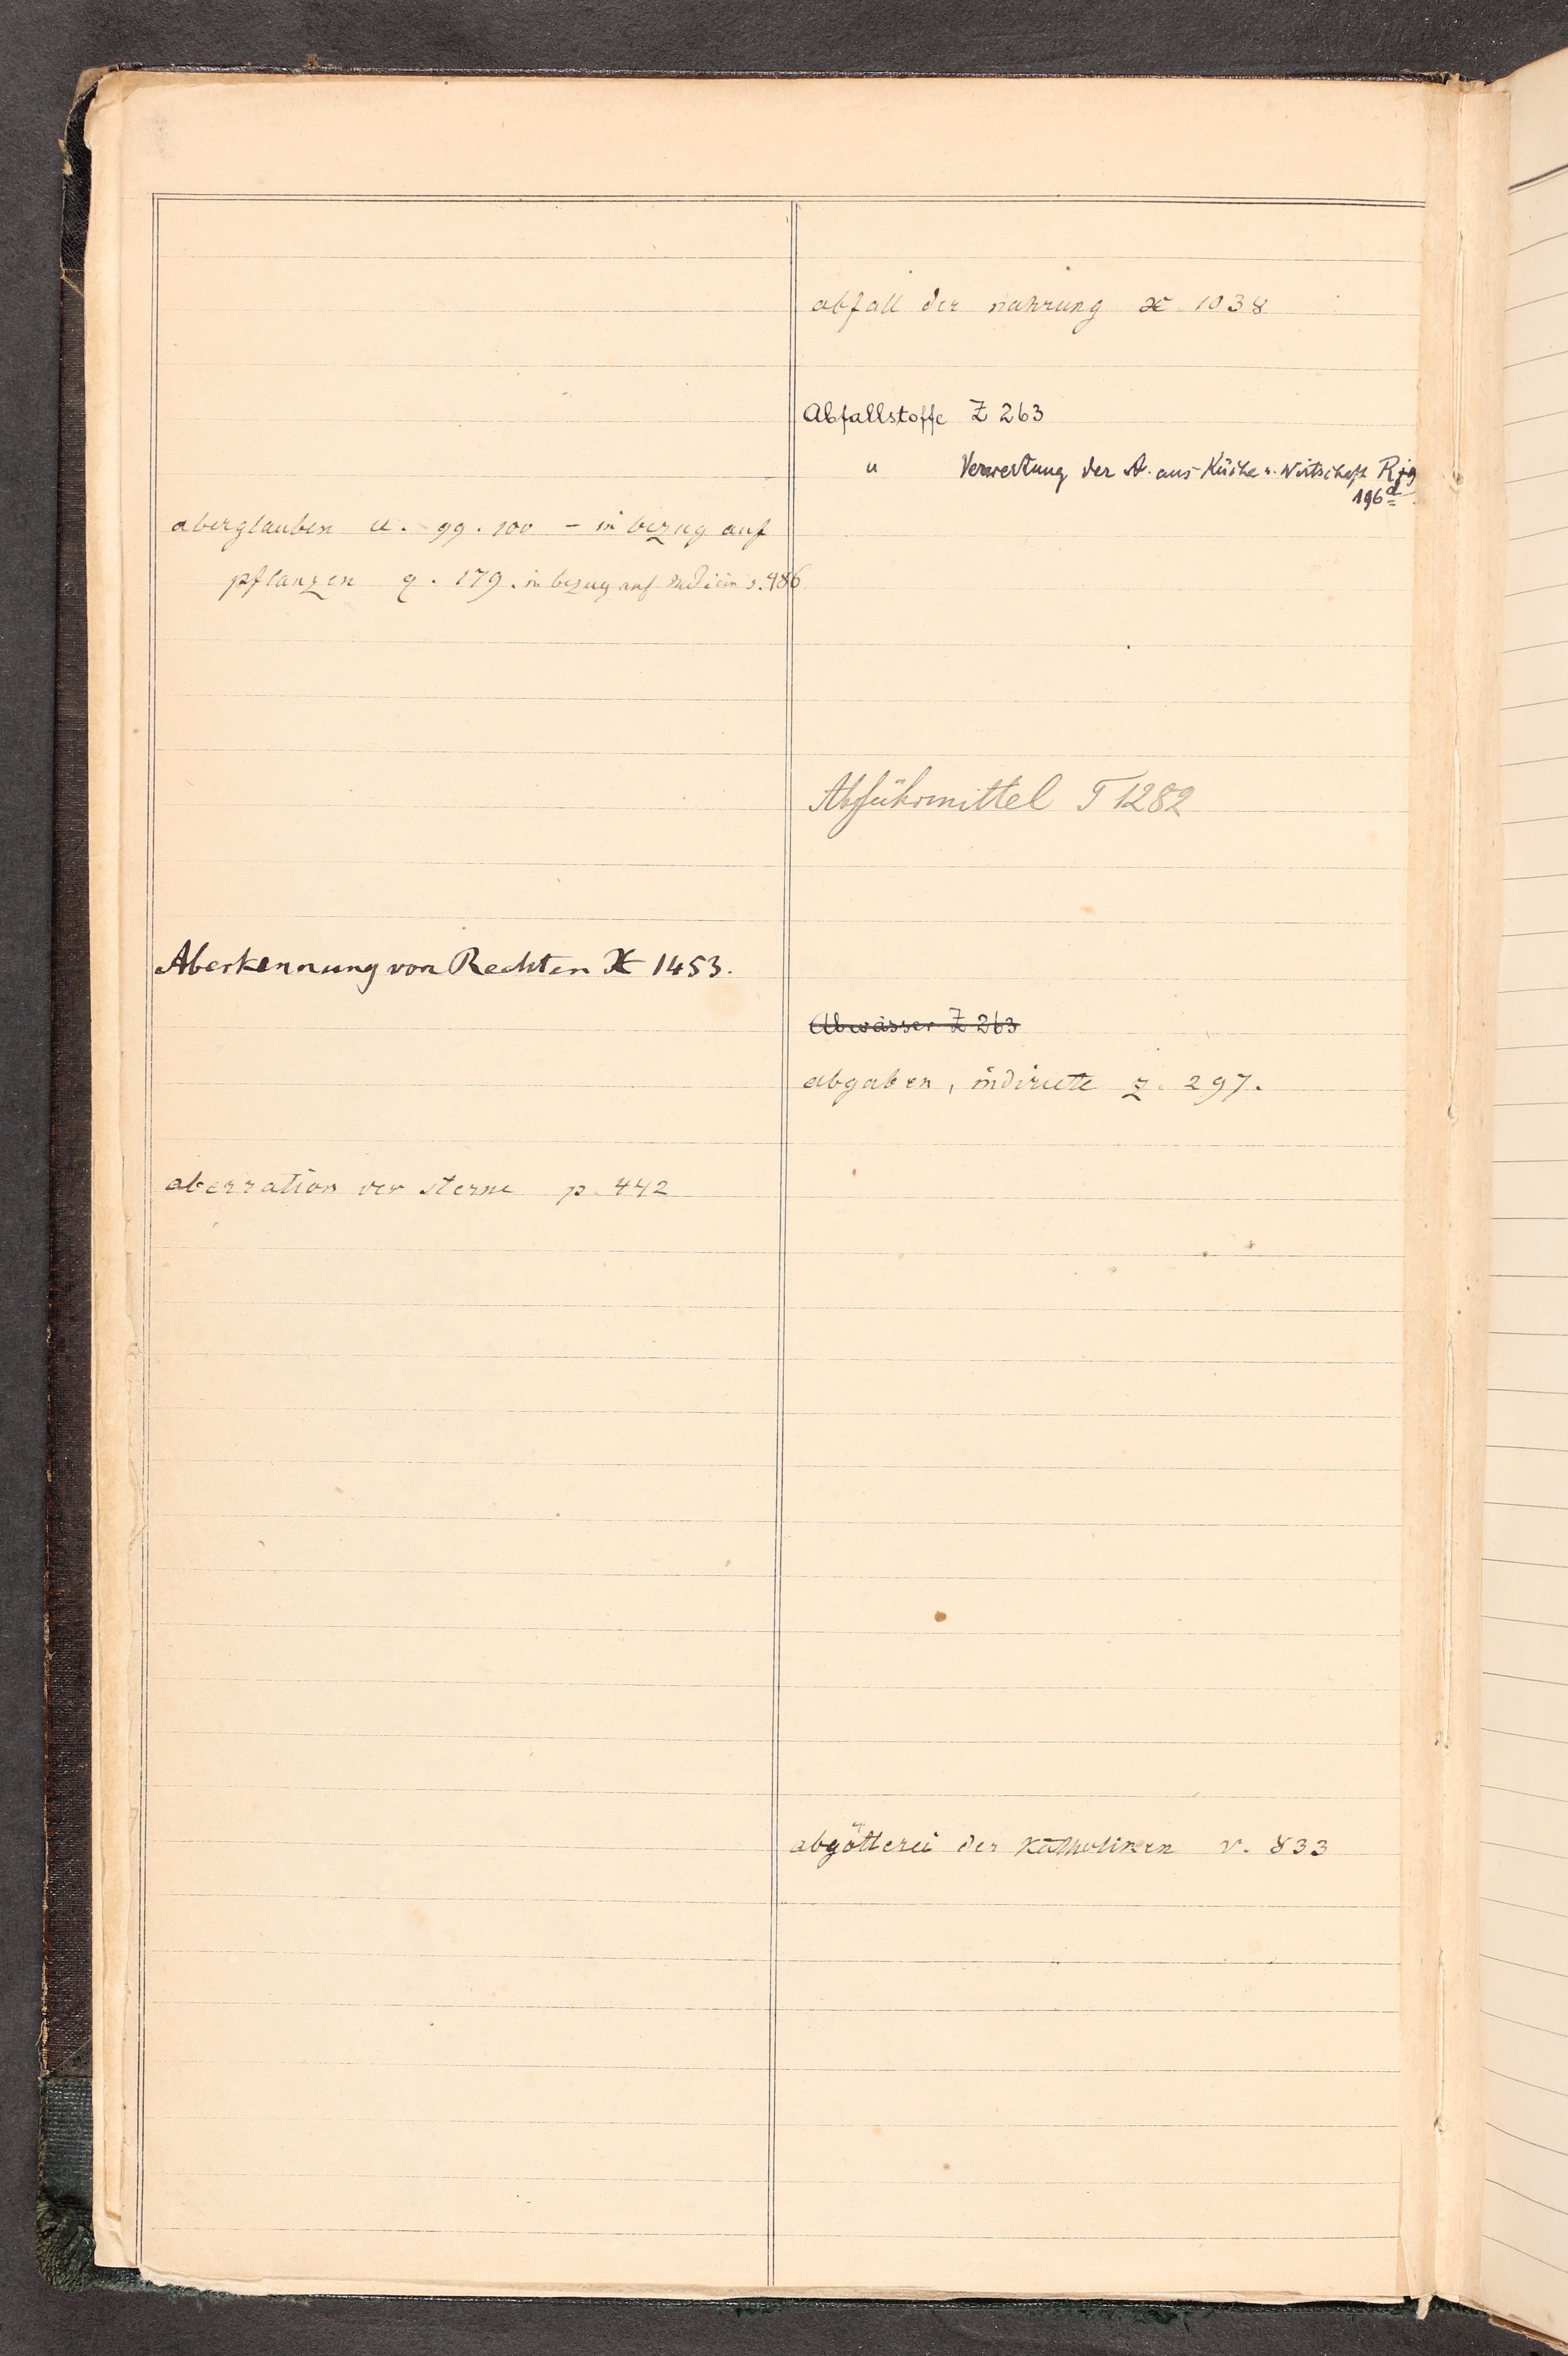 aberglauben u. 99. 100 – in bezug auf
pflanzen q. 179. in bezug auf medicin s. 486
Aberkennung von Rechten X 1453.
aberration der sterne p. 442
abfall der nahrung æ 1038
Abfallstoffe Z 263
" Verwertung der A. aus Küche u. Wirtschaft
196d
Abführmittel T 1282
Abwässer Z 263
abgaben, indirecte z. 297.
abgötterei der Katholiken v. 833